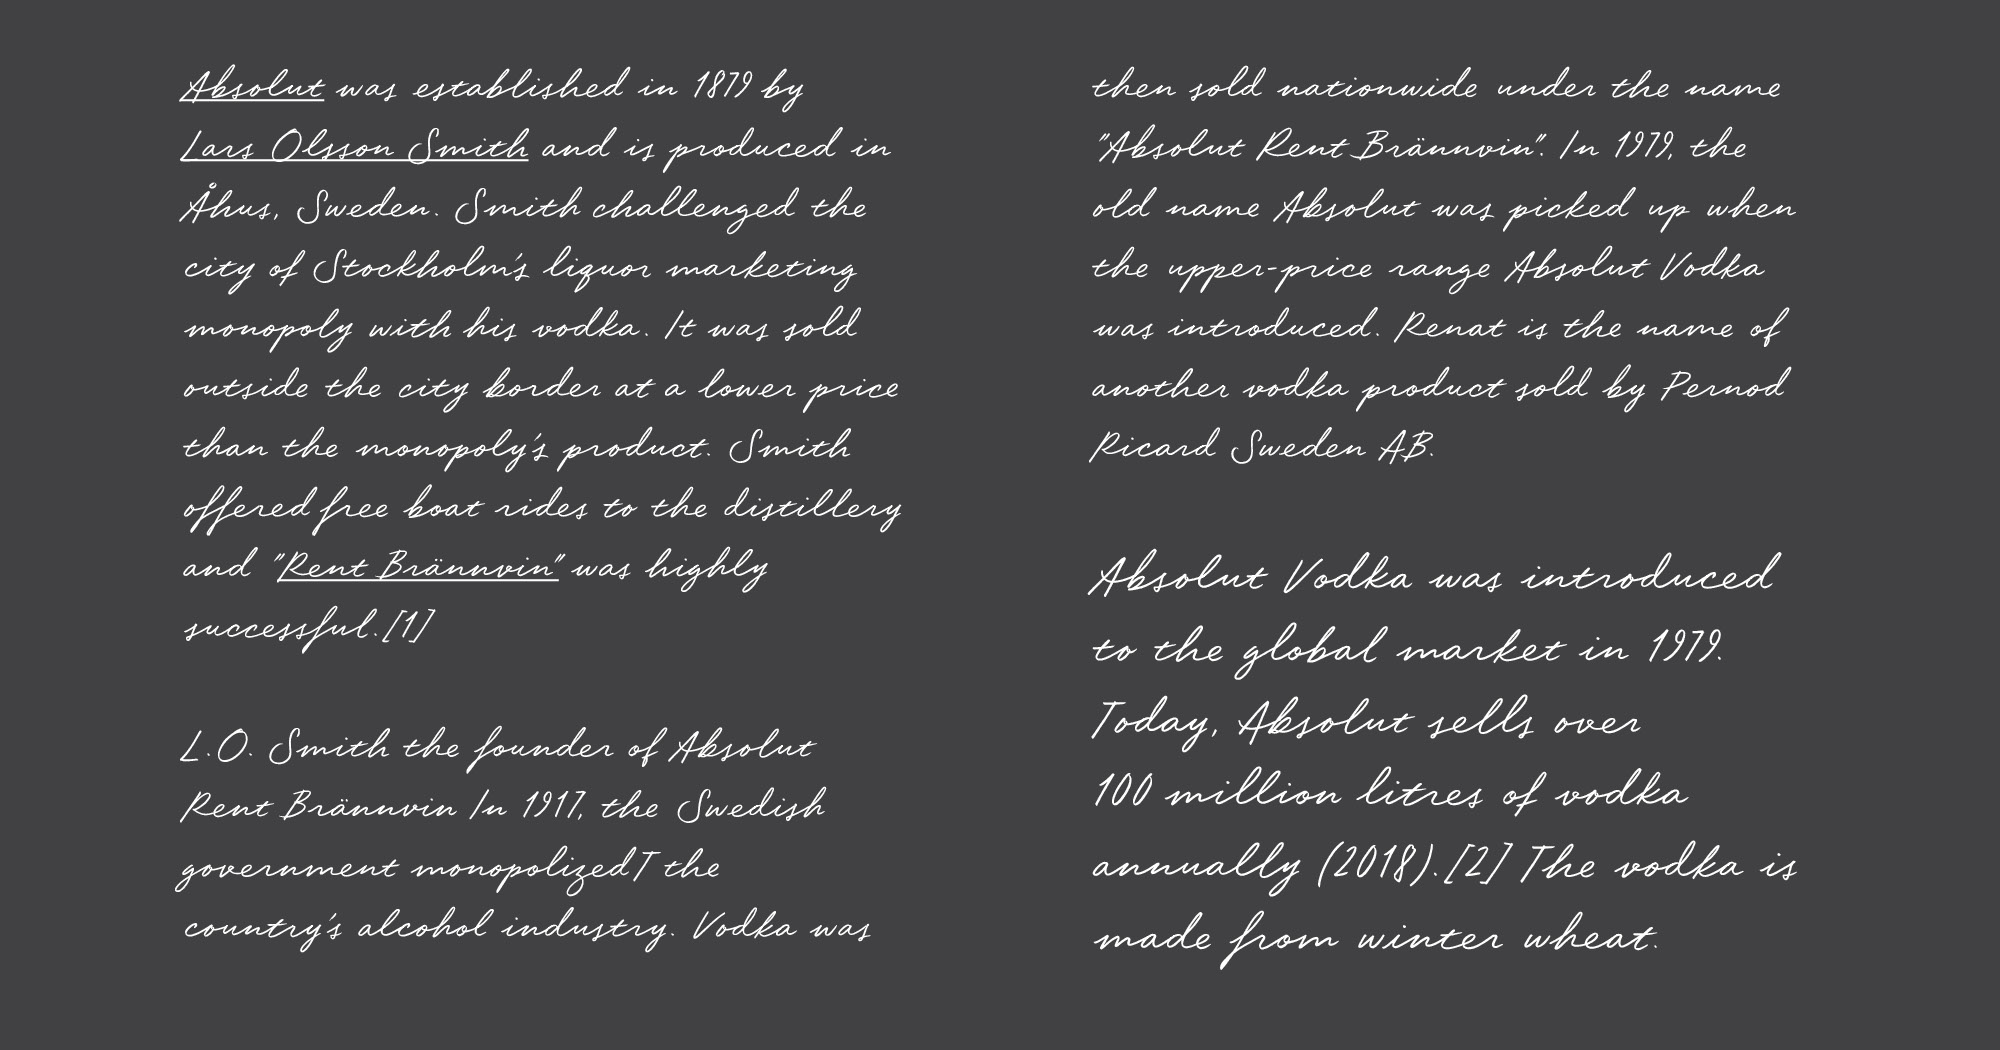 Absolut was established in 1879 by
Lars Olsson Smith and is produced in
Åhus, Sweden. Smith challenged the
city of Stockholm's liquor marketing
monopoly with his vodka. It was sold
outside the city border at a lower price
than the monopoly's product. Smith
offered free boat rides to the distillery
and "Rent Brännvin" was highly
successful.[1]
L.O. Smith the founder of Absolut
Rent Brännvin In 1917, the Swedish
government monopolizedT the
country's alcohol industry. Vodka was
then sold nationwide under the name
"Absolut Rent Brännvin". In 1979, the
old name Absolut was picked up when
the upper-price range Absolut Vodka
was introduced. Renat is the name of
another vodka product sold by Pernod
Ricard Sweden AB.
Absolut Vodka was introduced
to the global market in 1979.
Today, Absolut sells over
100 million litres of vodka
annually (2018).[2] The vodka is
made from winter wheat.